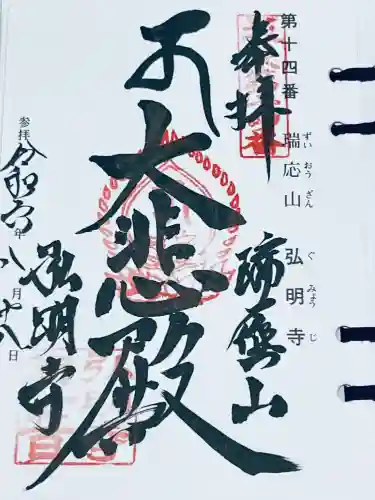 第十四番 瑞応山 弘明寺
ずいおうざん ぐみょうじ
奉拝
瑞應山
大悲殿
弘明寺
参拝 令和六年八月十八日